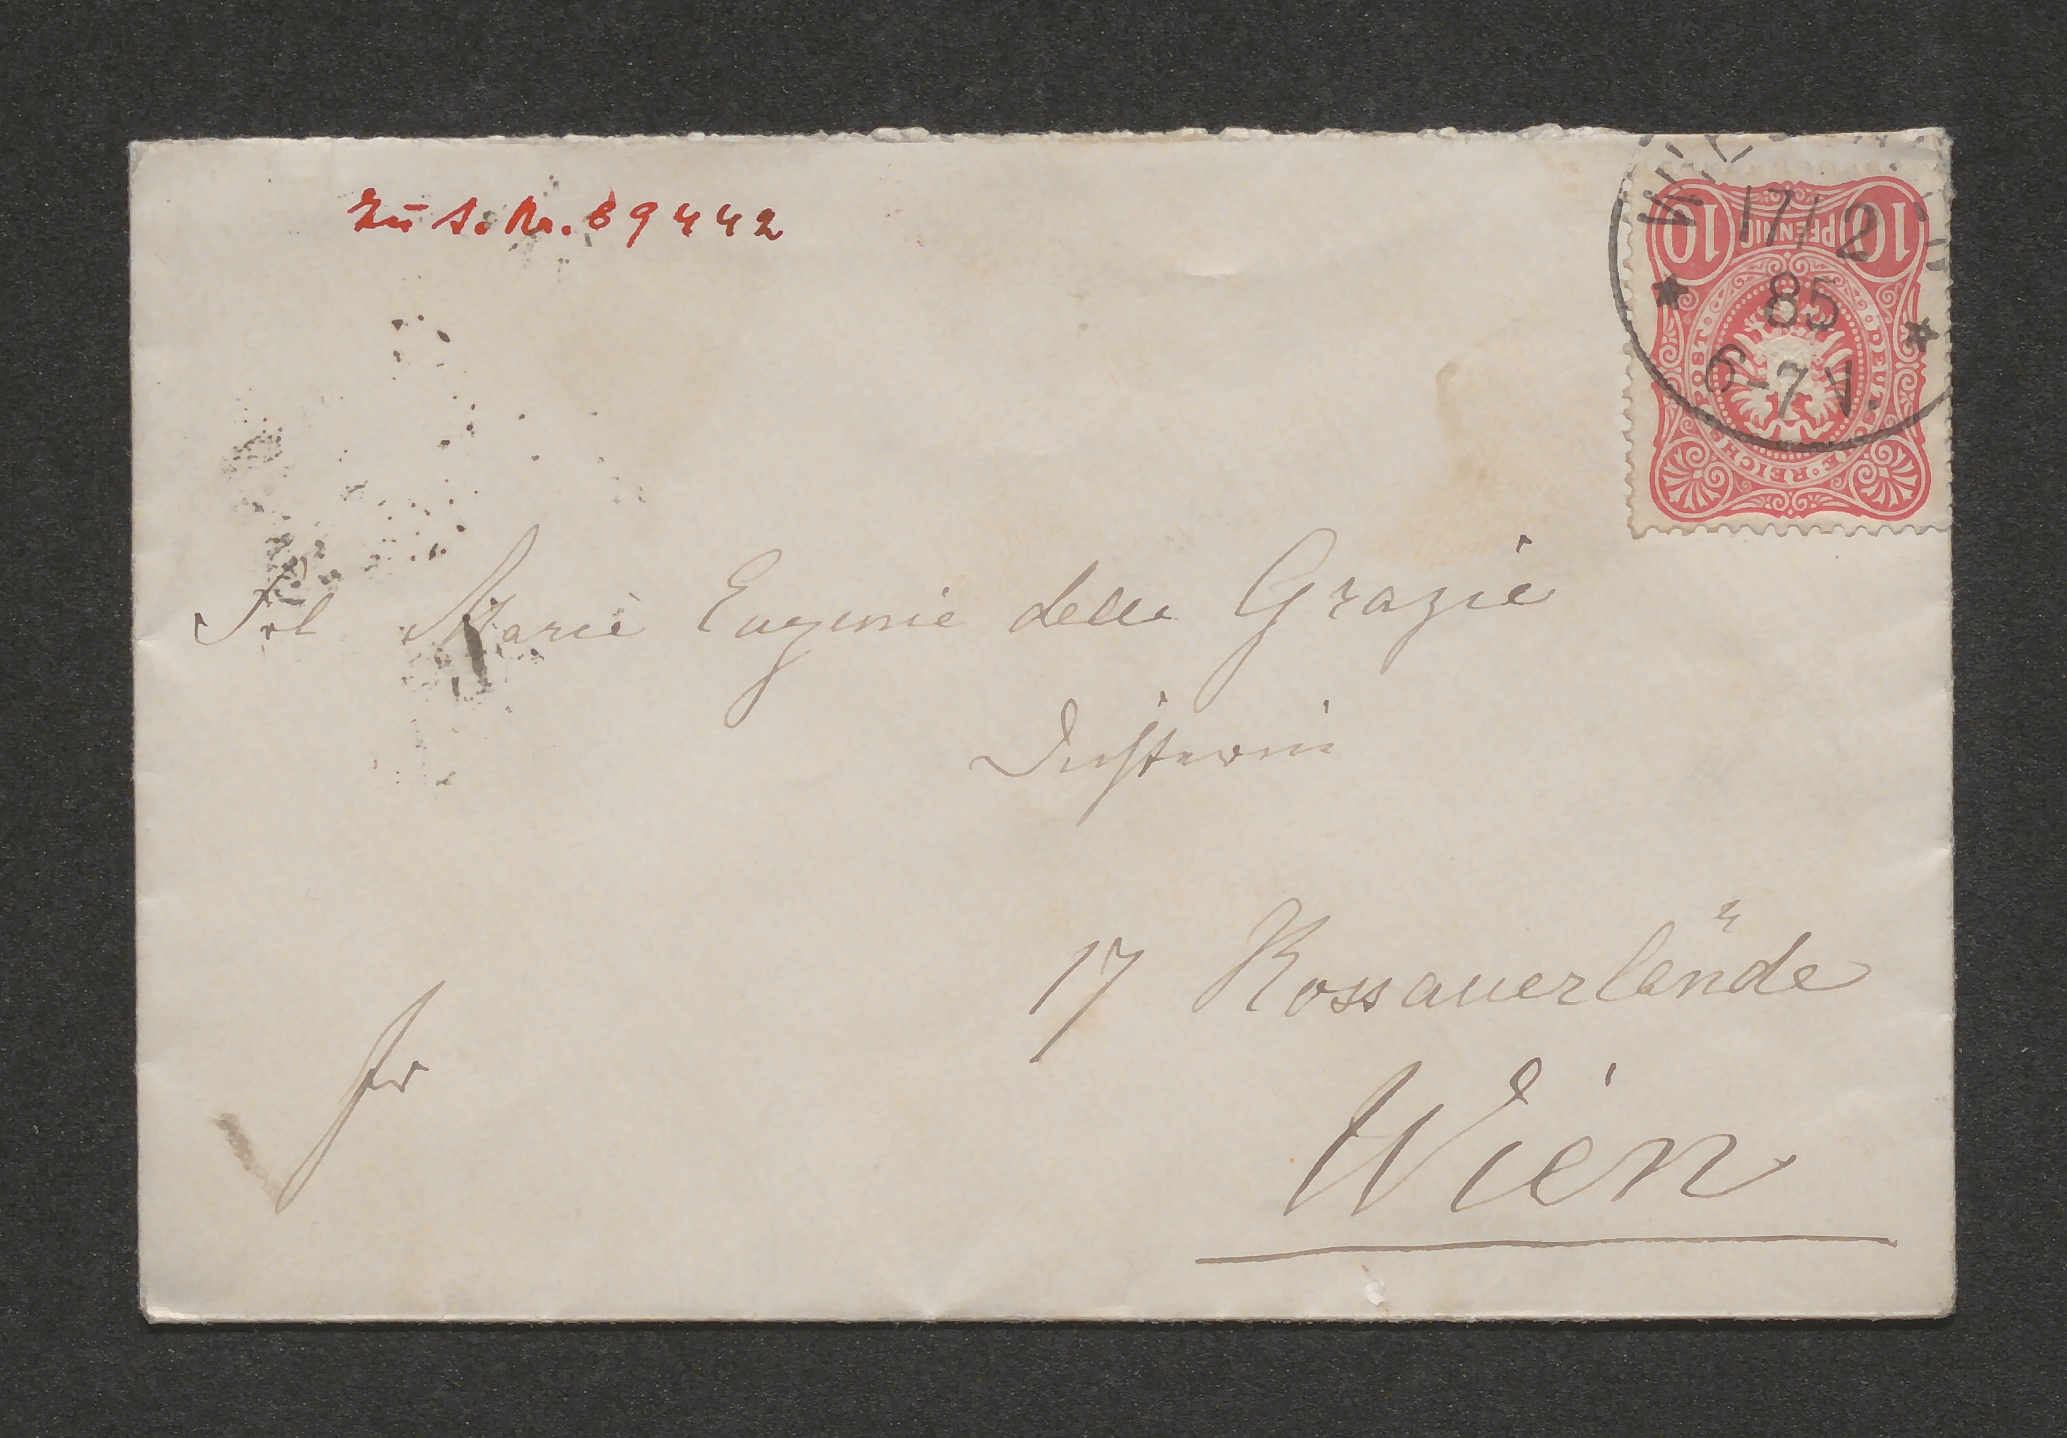 Zu I. Nr. 69442
17/2
85
6-7 V.
10 PFENNIG 10
DEUTSCHE REICHS-POST
Frl Marie Eugenie delle Grazie
Dichterin
17 Rossauerlände
fr
Wien